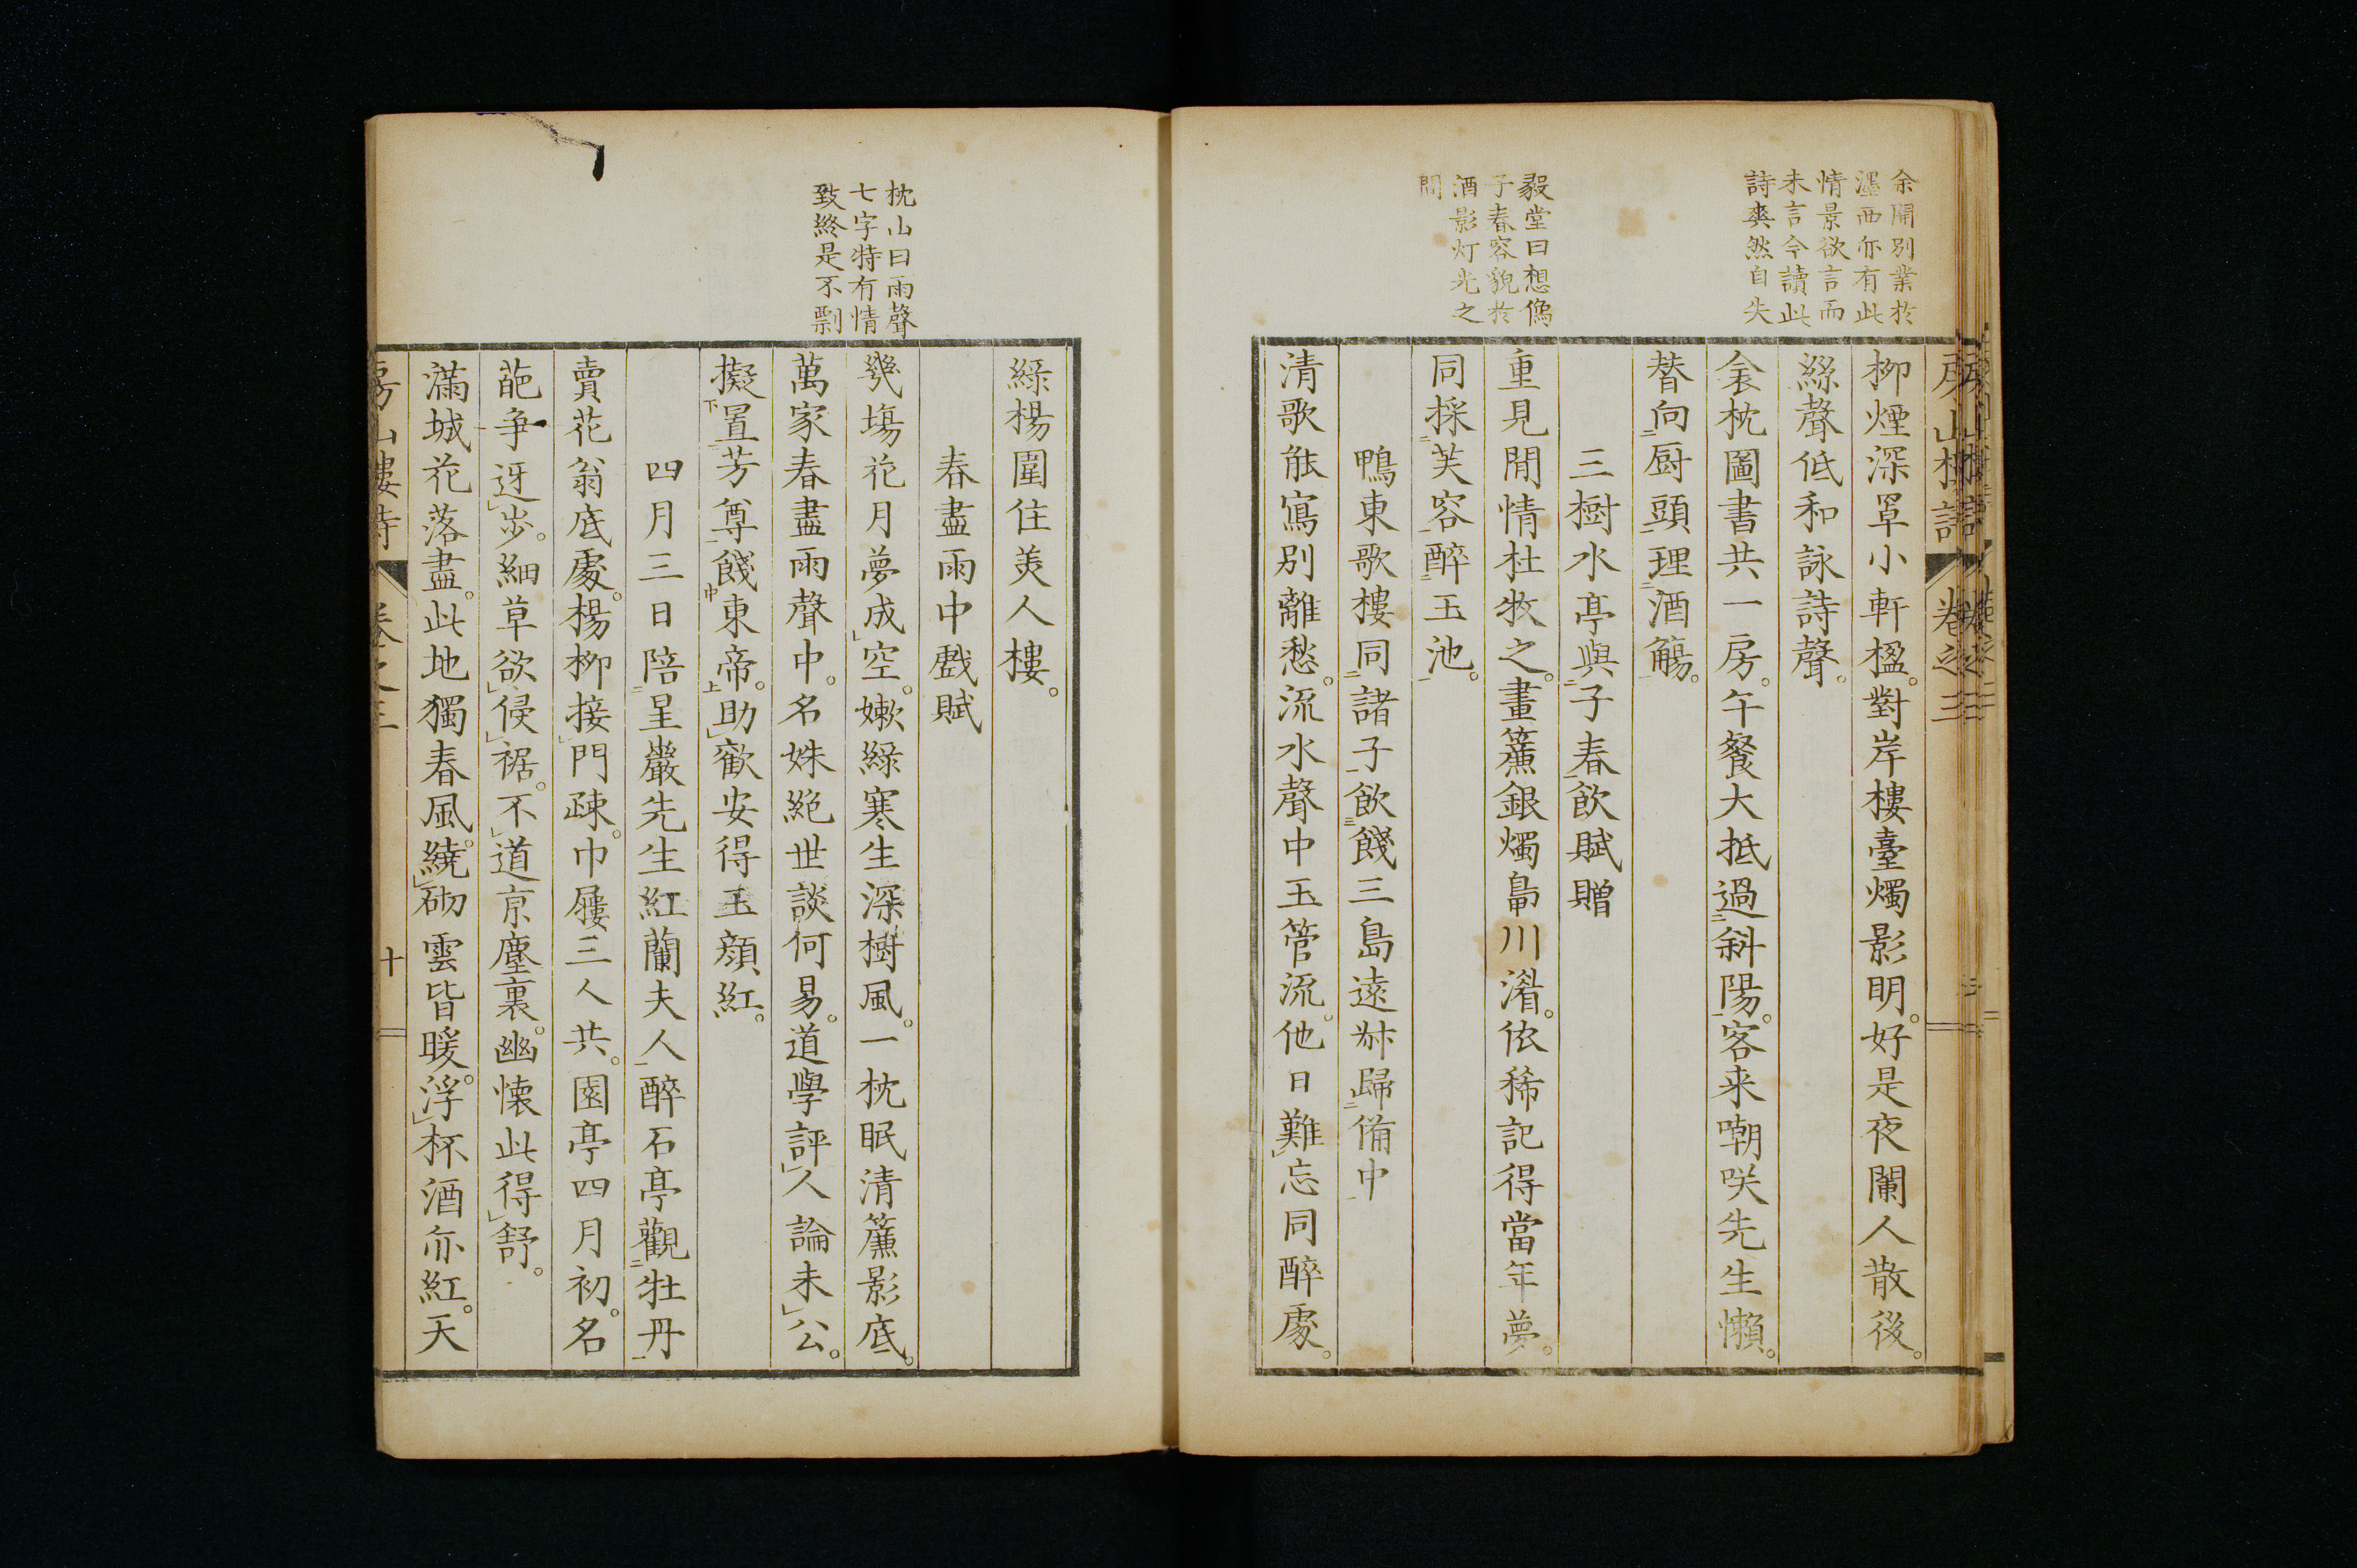 余開別業於
濹西亦有此
情景欲言而
未言今讀此
詩爽然自失
毅堂曰想像
子春容貌於
酒影灯光之
間
房山樓詩 卷之三
柳煙深罩小軒楹。對岸樓臺燭影明。好是夜闌人散後。
絲聲低和詠詩聲。
衾枕圖書共一房。午餐大抵過斜陽。客来嘲咲先生懶。
替向厨頭理酒觴。
三樹水亭與子春飲賦贈
重見閒情杜牧之。畫簾銀燭鳧川湄。依稀記得當年夢。
同採芙容醉玉池。
鴨東歌樓同諸子飲餞三島遠叔歸備中
清歌能寫別離愁。流水聲中玉管流。他日難忘同醉處。
枕山曰雨聲
七字特有情
致終是不剽
綠楊圍住美人樓。
春盡雨中戲賦
幾塲花月夢成空。嫰綠寒生深樹風。一枕眠清簾影底。
萬家春盡雨聲中。名姝絕世談何易。道學評人論未公。
擬置芳尊餞東帝。助歡安得玉顔紅。
四月三日陪星巖先生紅蘭夫人醉石亭觀牡丹
賣花翁底處。楊柳接門疎。巾屨三人共。園亭四月初。名
葩争迓步。細草欲侵裾。不道京塵裏。幽懐此得舒。
滿城花落盡。此地獨春風。繞砌雲皆暖。浮杯酒亦紅。天
房山樓詩 卷之三 十